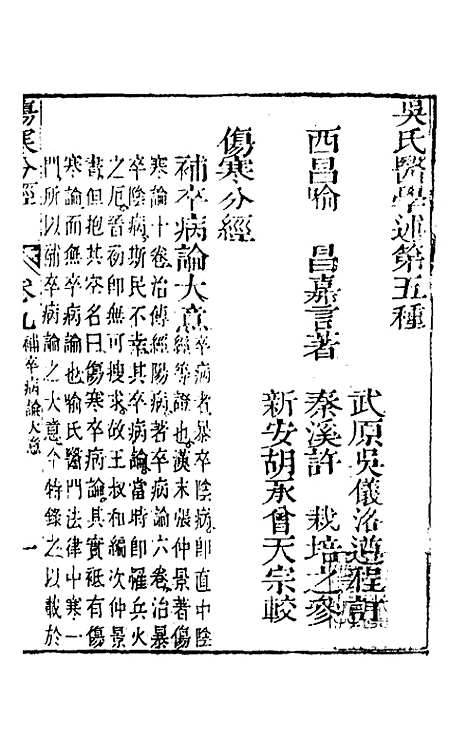 吳氏醫學述第五種
西昌喻　昌嘉言著
武原吳儀洛遵程訂
秦溪許　栽培之參
新安胡承曾天宗較
傷寒分經
補卒病論大意
卒病者暴卒陰病即直中陰
經等證也漢末張仲景著傷
寒論十卷治傳經陽病著卒病論六卷治暴
卒陰病斯民不幸其卒病論當時即罹兵火
之厄晉初即無可搜求故王叔和編次仲景
書但抱其卒名曰傷寒卒病論其實祗有傷
寒論而無卒病論也喻氏醫門法律中寒一
門所以補卒病論之大意今特錄之以載於
傷寒分經
卷九
補卒病論大意
一